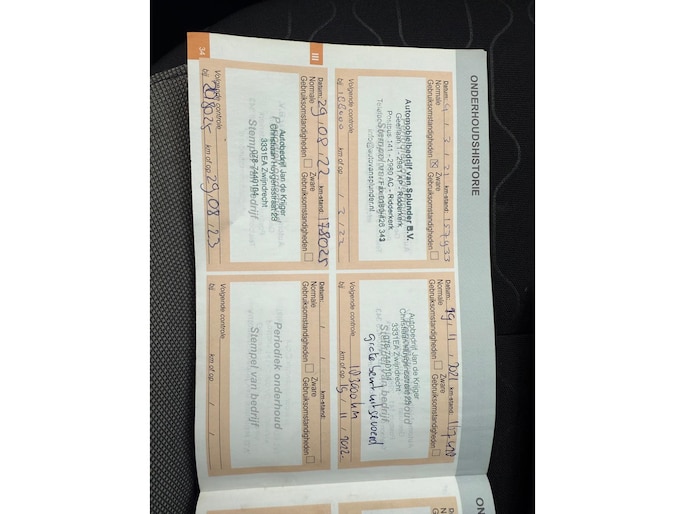 ONDERHOUDSHISTORIE
Datum: 9 / 3 / 21 km-stand: 157933
Normale Zware
Gebruiksomstandigheden ☒ Gebruiksomstandigheden ☐
Automobielbedrijf van Splunder B.V.
Geerlaan 1 - 2981 XP - Ridderkerk
Postbus 141 - 2980 AC - Ridderkerk
info@autovansplunder.nl
Volgende controle
bij: km of op: / 3 / 22
Datum: 19 / 11 / 2021 km-stand:
Normale Zware
Gebruiksomstandigheden ☐ Gebruiksomstandigheden ☐
Autobedrijf Jan de Krijger
Christiaan Huygensstraat 23
3331EA Zwijndrecht
078-7440104
grote beurt uitgevoerd
Volgende controle
bij: km of op: 19 / 11 / 2022
III
Datum: 29 / 08 / 22 km-stand: 178025
Normale Zware
Gebruiksomstandigheden ☐ Gebruiksomstandigheden ☐
Autobedrijf Jan de Krijger
Christiaan Huygensstraat 23
3331EA Zwijndrecht
078-7440104
Stempel van bedrijf
Volgende controle
bij: 208025 km of op: 29 / 08 / 23
Datum: / / km-stand:
Normale Zware
Gebruiksomstandigheden ☐ Gebruiksomstandigheden ☐
Periodiek onderhoud
Stempel van bedrijf
Volgende controle
bij: km of op: / /
34
ON